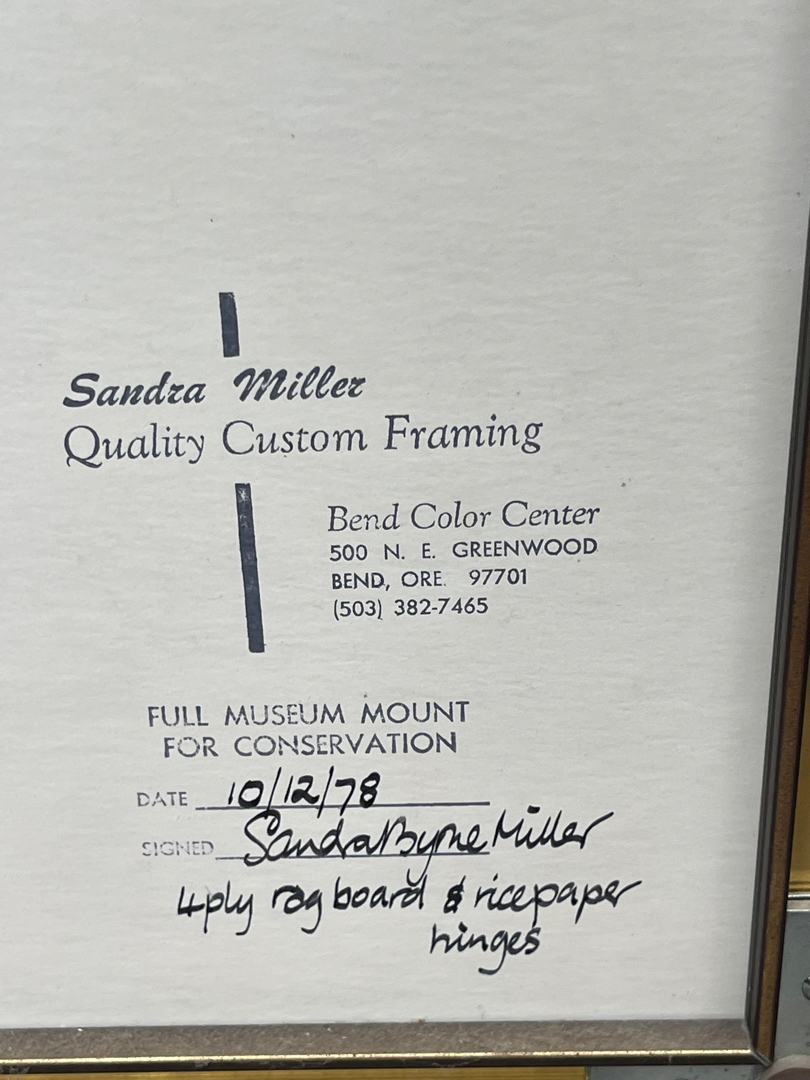 Sandra Miller
Quality Custom Framing
Bend Color Center
500 N. E. GREENWOOD
BEND, ORE. 97701
(503) 382-7465
FULL MUSEUM MOUNT
FOR CONSERVATION
DATE 10/12/78
SIGNED Sandra Byrne Miller
4ply rag board & ricepaper
hinges